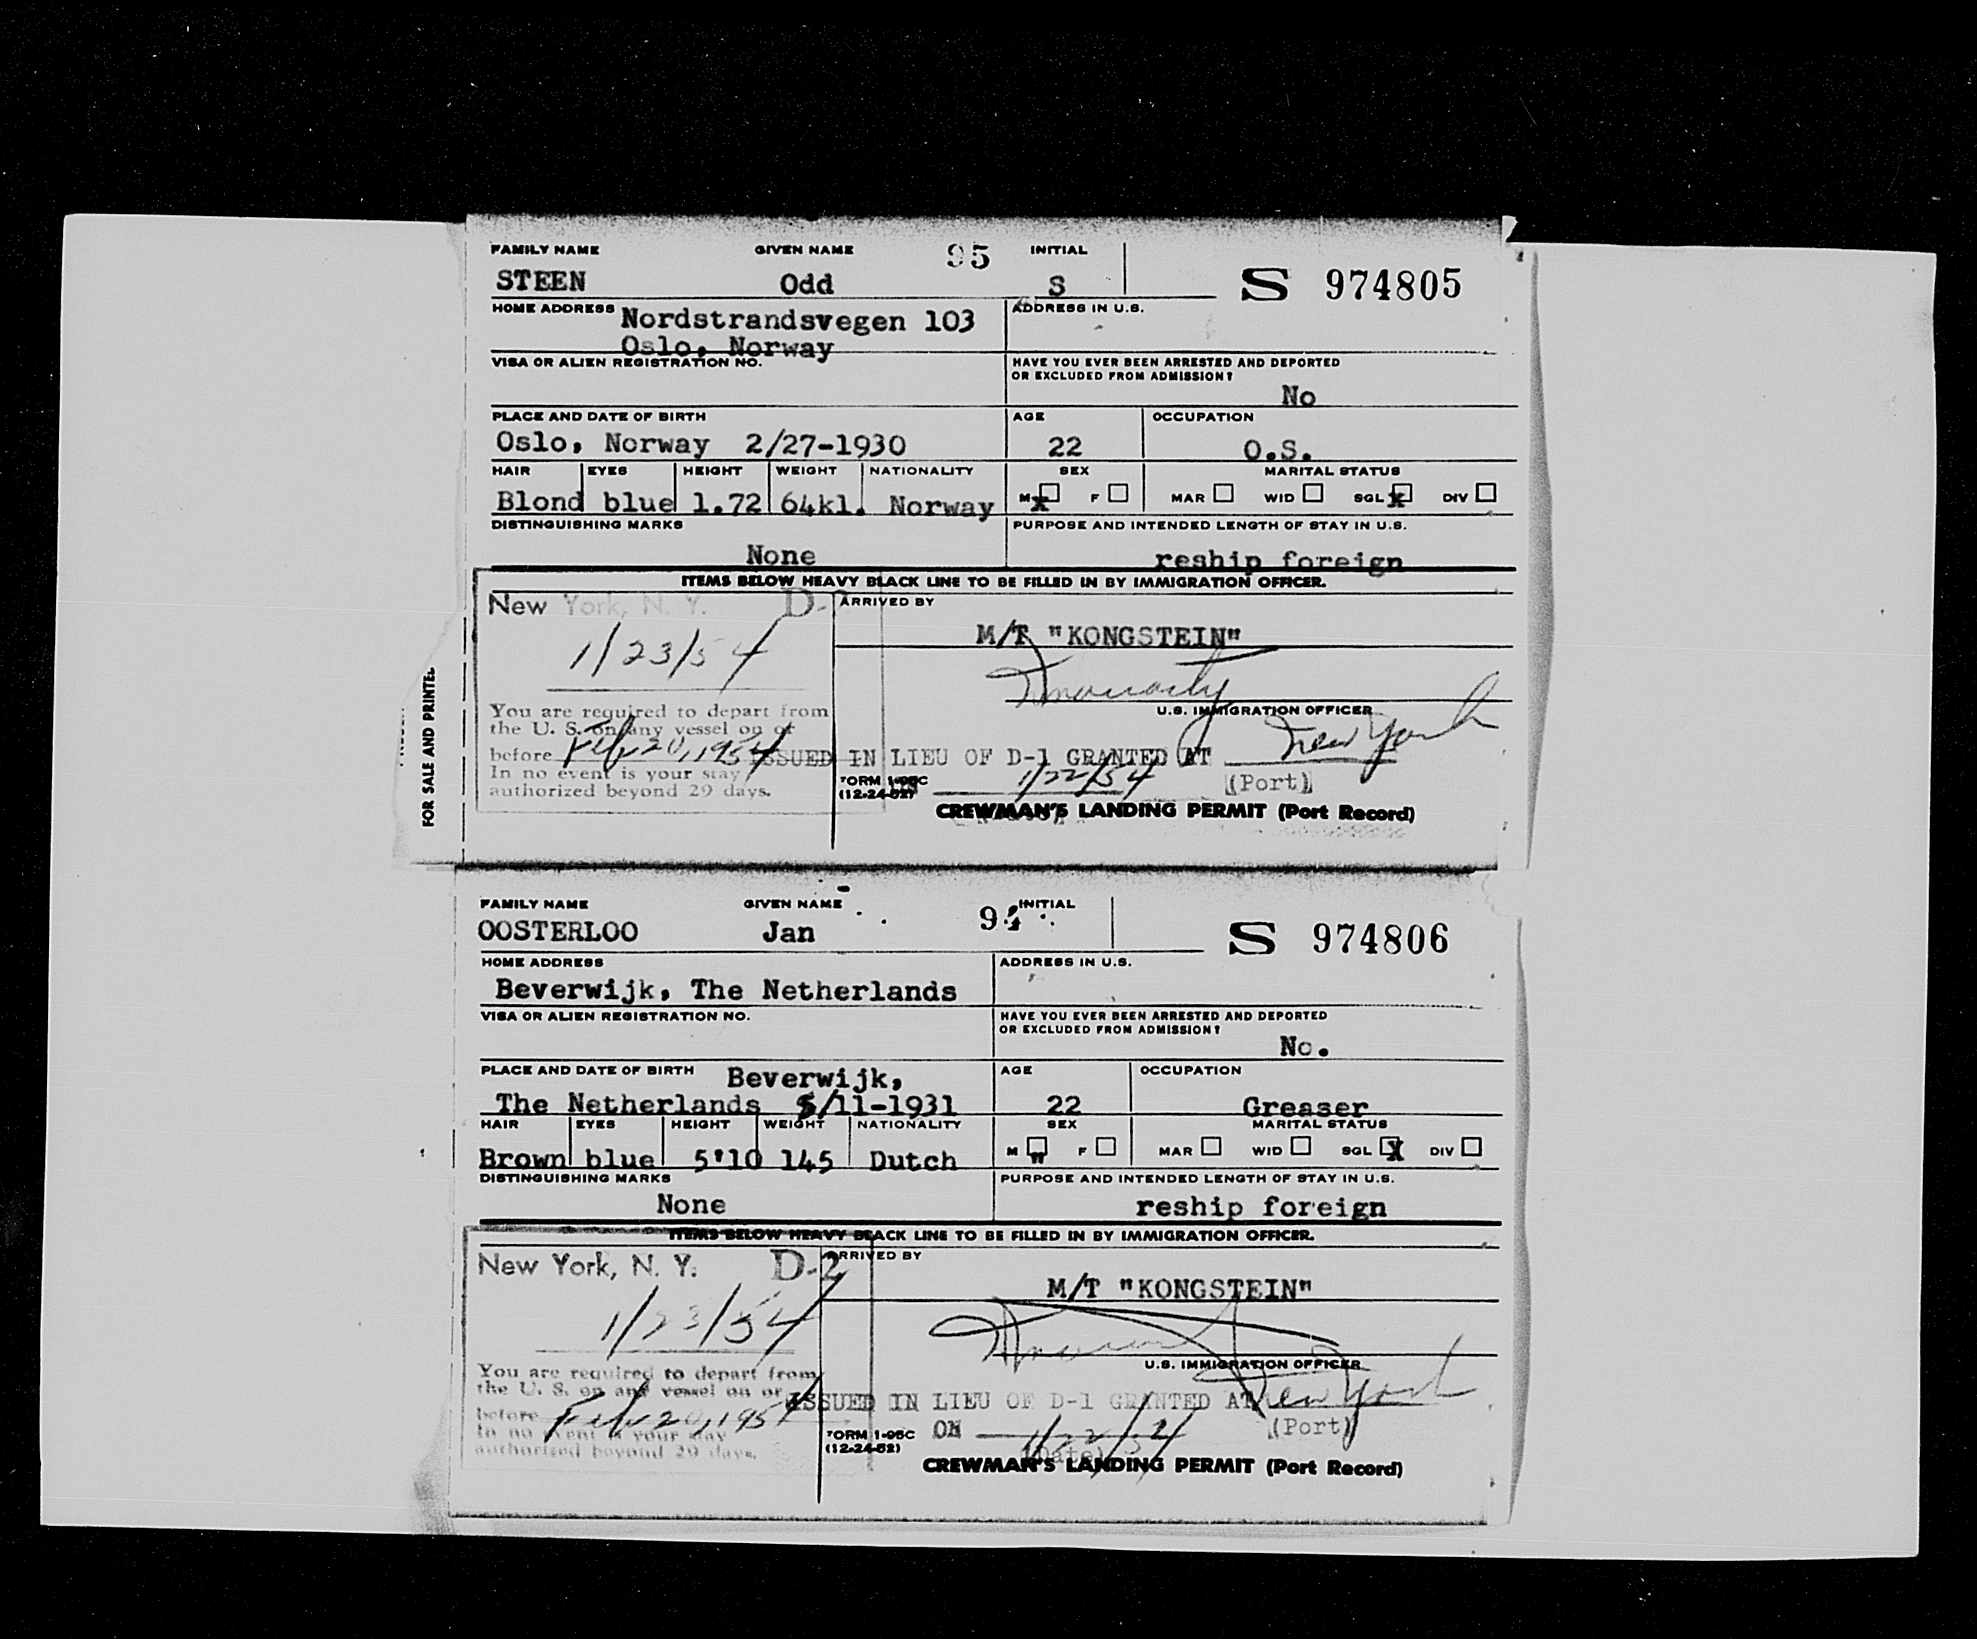 FAMILY NAME GIVEN NAME 95 INITIAL
STEEN Odd S S 974805
HOME ADDRESS Nordstrandsvegen 103 ADDRESS IN U.S.
Oslo, Norway
VISA OR ALIEN REGISTRATION NO. HAVE YOU EVER BEEN ARRESTED AND DEPORTED
OR EXCLUDED FROM ADMISSION?
No
PLACE AND DATE OF BIRTH AGE OCCUPATION
Oslo, Norway 2/27-1930 22 O.S.
HAIR EYES HEIGHT WEIGHT NATIONALITY SEX MARITAL STATUS
Blond blue 1.72 64kl. Norway M x F MAR WID SGL x DIV
DISTINGUISHING MARKS PURPOSE AND INTENDED LENGTH OF STAY IN U.S.
None reship foreign
ITEMS BELOW HEAVY BLACK LINE TO BE FILLED IN BY IMMIGRATION OFFICER.
New York, N. Y. D-2 ARRIVED BY
M/T "KONGSTEIN"
1/23/54
You are required to depart from U.S. IMMIGRATION OFFICER
the U. S. on any vessel on or
before Feb 20, 1954 ISSUED IN LIEU OF D-1 GRANTED AT New York
In no event is your stay FORM I-95C 1/22/54 (Port)
authorized beyond 29 days. (12-24-52)
CREWMAN'S LANDING PERMIT (Port Record)
FOR SALE AND PRINTE
FAMILY NAME GIVEN NAME 94 INITIAL
OOSTERLOO Jan S 974806
HOME ADDRESS ADDRESS IN U.S.
Beverwijk, The Netherlands
VISA OR ALIEN REGISTRATION NO. HAVE YOU EVER BEEN ARRESTED AND DEPORTED
OR EXCLUDED FROM ADMISSION?
No.
PLACE AND DATE OF BIRTH Beverwijk, AGE OCCUPATION
The Netherlands /11-1931 22 Greaser
HAIR EYES HEIGHT WEIGHT NATIONALITY SEX MARITAL STATUS
Brown blue 5'10 145 Dutch M " F MAR WID SGL X DIV
DISTINGUISHING MARKS PURPOSE AND INTENDED LENGTH OF STAY IN U.S.
None reship foreign
ITEMS BELOW HEAVY BLACK LINE TO BE FILLED IN BY IMMIGRATION OFFICER.
New York, N. Y. D-2 ARRIVED BY
M/T "KONGSTEIN"
1/23/54
You are required to depart from U.S. IMMIGRATION OFFICER
the U. S. on any vessel on or ISSUED IN LIEU OF D-1 GRANTED AT New York
before Feb 20, 1954 (Port)
In no event is your stay FORM I-95C ON 1/22/54
authorized beyond 29 days. (12-24-52) (Date)
CREWMAN'S LANDING PERMIT (Port Record)